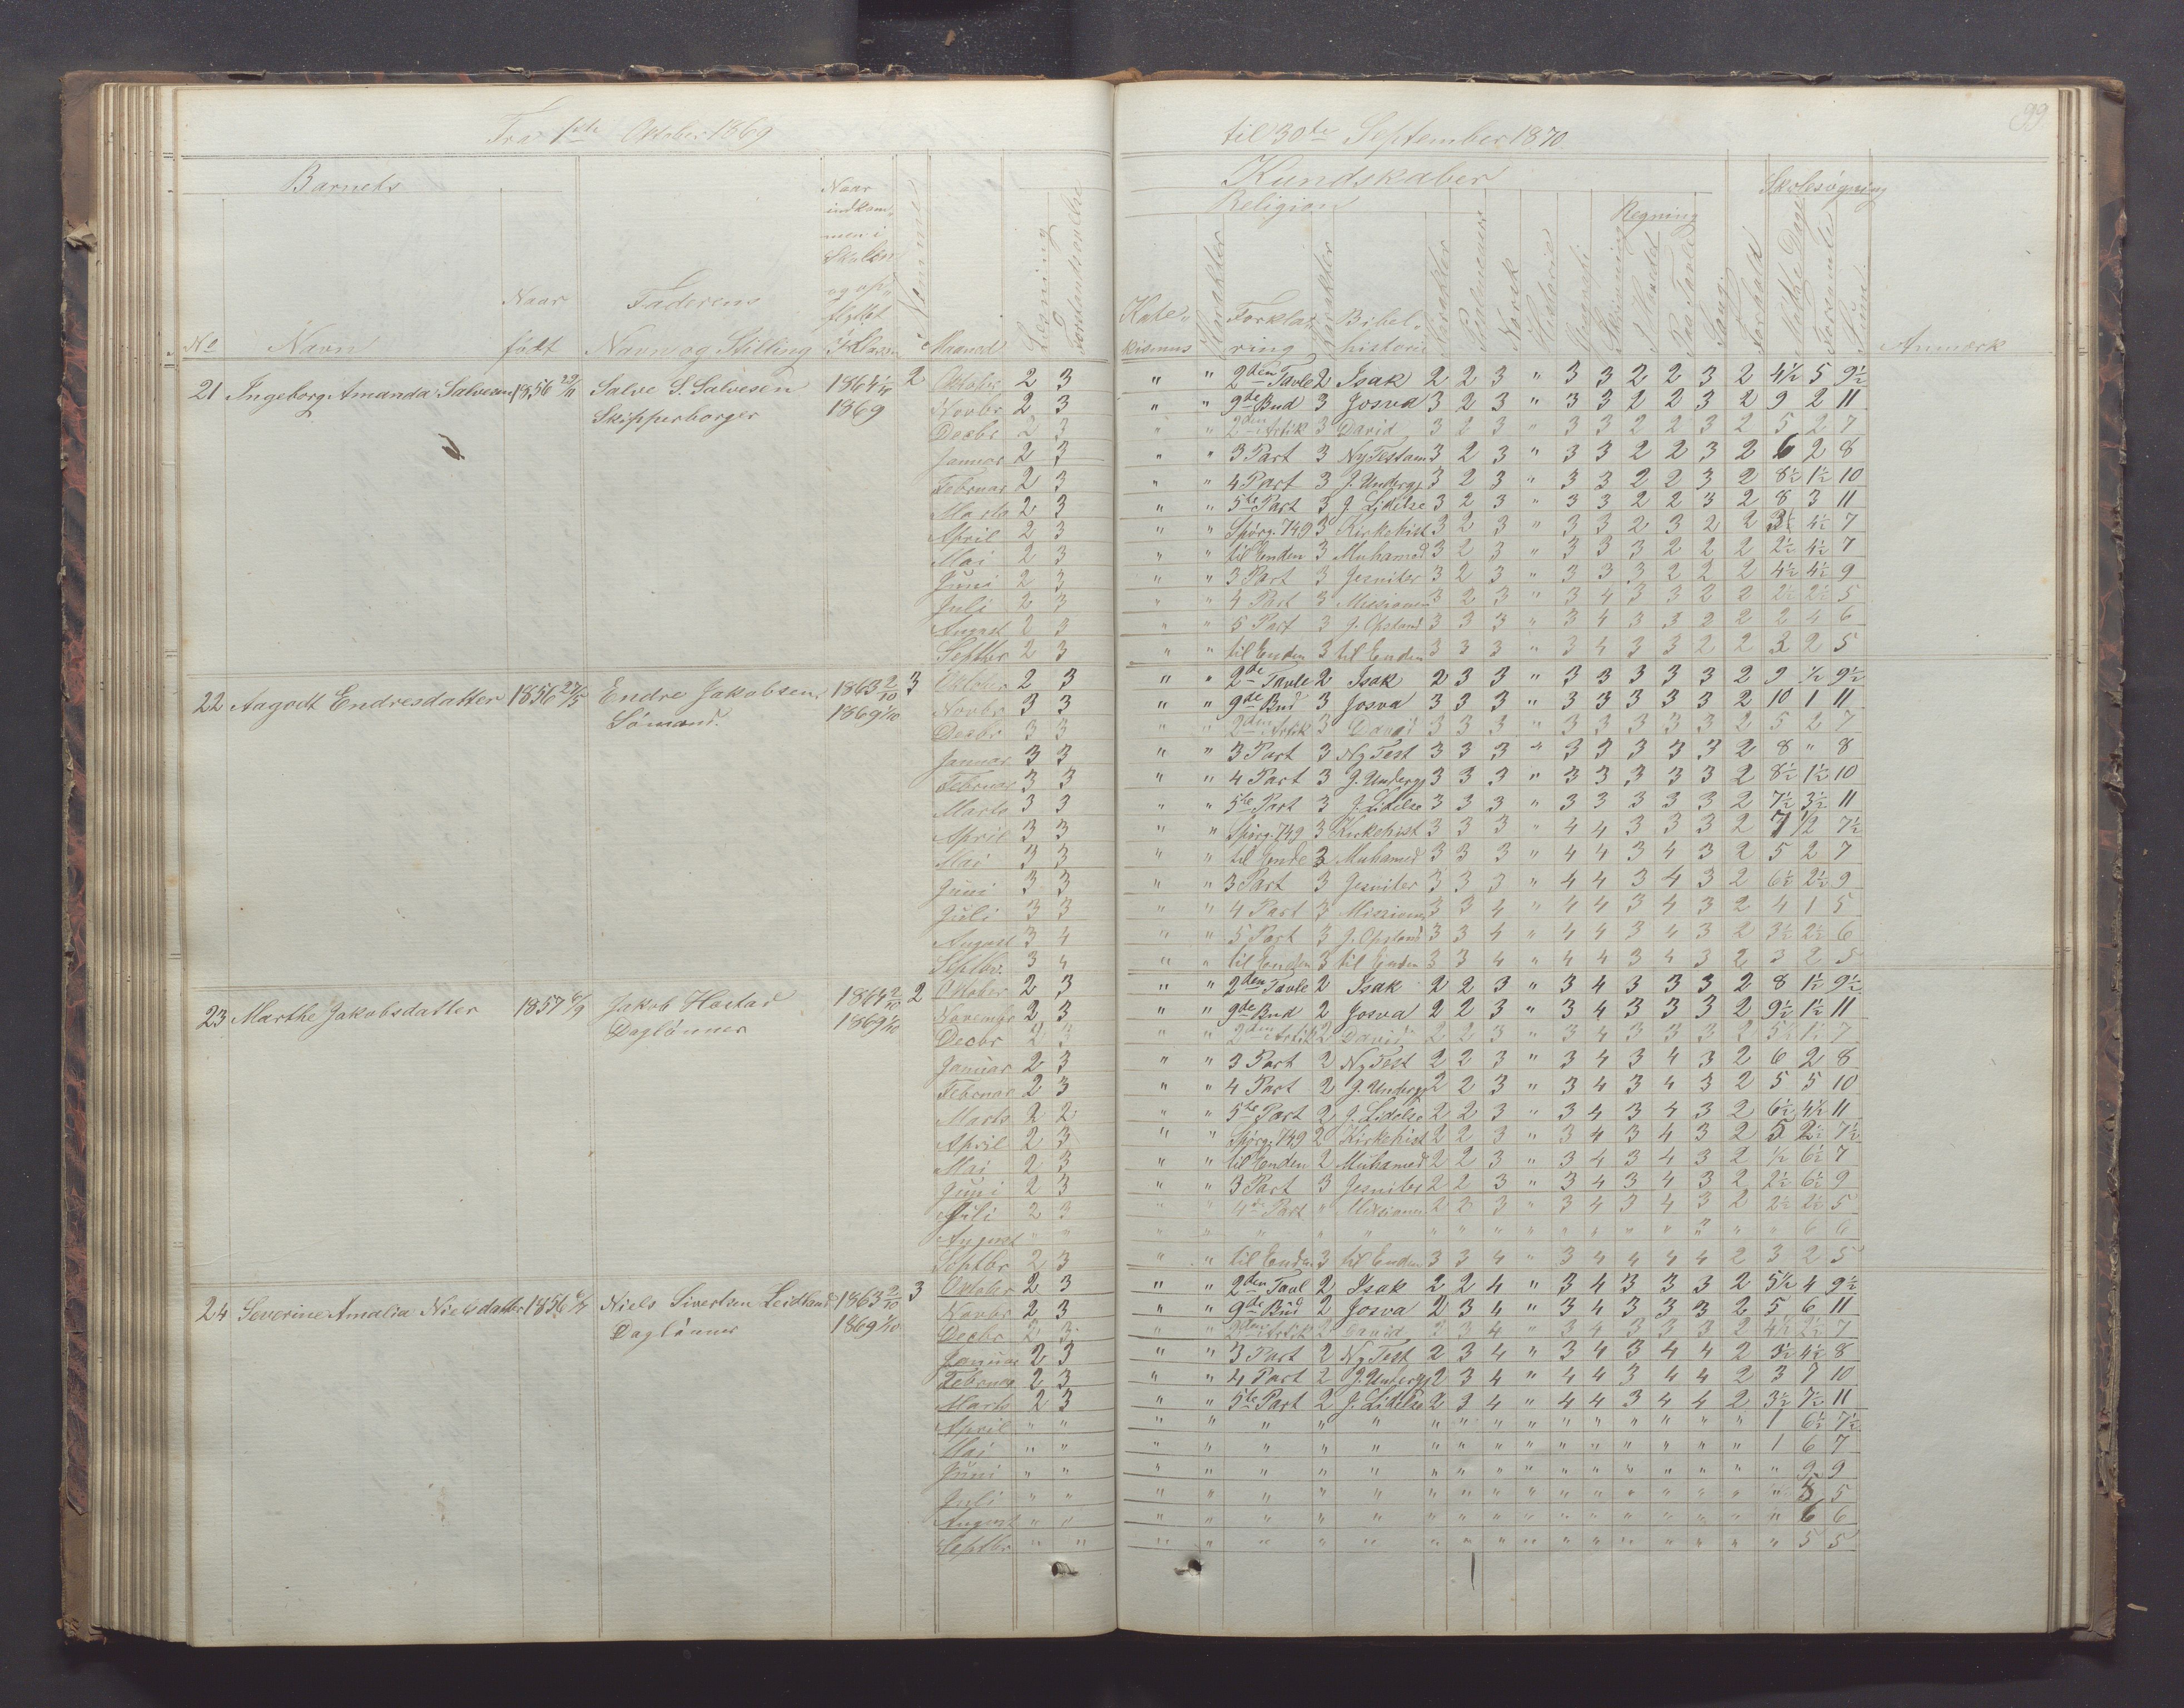 99
Fra 1ste Oktober 1869 til 30te September 1870
Barnets Kundskaber Skolesøgning
Religion Regning
No Navn Naar født Faderens Navn og Stilling Naar indkommen i Skolen og opflyttet i Klassen Maaned Læsning Forstandsøvelse
Katekismus Karakter Forklaring Karakter Bibelhistorie Karakter Psalmevers Norsk Historie Skrivning I Hovedet Paa Tavle Sang Forhold Mødte Dage Forsømte Sum Anmærk
21 Ingeborg Amanda Salvesen 1856 29/11 Salve S. Salvesen 1864 2 Oktober 2 3 " " 2den Tavle 2 Isak 2 2 3 " 3 3 2 2 3 2 4½ 5 9½
Skipperborger 1869 Novbr 2 3 " " 9de Bud 3 Josva 3 2 3 " 3 3 2 2 3 2 9 2 11
Decbr 2 3 " " 2den Artik 3 David 3 2 3 " 3 3 2 2 3 2 5 2 7
Januar 2 3 " " 3 Part 3 Ny Testam 3 2 3 " 3 3 2 2 3 2 6 2 8
Februar 2 3 " " 4 Part 3 J. Undergj 3 2 3 " 3 3 2 2 3 2 8½ 1½ 10
Marts 2 3 " " 5te Part 3 J. Lidelse 3 2 3 " 3 3 2 2 3 2 8 3 11
April 2 3 " " Spörg. 749 3 Kirkehist 3 2 3 " 3 3 2 3 2 2 4½ 7
Mai 2 3 " " til Enden 3 Muhamed 3 2 3 " 3 3 3 2 2 2 2½ 4½ 7
Juni 2 3 " " 3 Part 3 Jesuiter 3 2 3 " 3 3 3 2 2 2 4½ 4½ 9
Juli 2 3 " " 4 Part 3 Missionen 3 2 3 " 3 4 3 3 2 2 2½ 2½ 5
August 2 3 " " 5 Part 3 J. Opstand 3 3 3 " 3 4 3 3 2 2 2 4 6
Septbr 2 3 " " til Enden 3 til Enden 3 3 3 " 3 4 3 3 2 2 3 2 5
22 Aagodt Endresdatter 1856 27/5 Endre Jakobsen 1863 2/10 3 Oktober 2 3 " " 2de Tavle 2 Isak 2 3 3 " 3 3 3 3 3 2 9 ½ 9½
Sömand. 1869 1/10 Novbr 3 3 " " 9de Bud 3 Josva 3 3 3 " 3 3 3 3 3 2 10 1 11
Decbr 3 3 " " 2den Artik 3 David 3 3 3 " 3 3 3 3 3 2 5 2 7
Januar 3 3 " " 3 Part 3 Ny Test 3 3 3 " 3 3 3 3 3 2 8 " 8
Februar 3 3 " " 4 Part 3 J. Undergj 3 3 3 " 3 3 3 3 3 2 8½ 1½ 10
Marts 3 3 " " 5te Part 3 J. Lidelse 3 3 3 " 3 3 3 3 3 2 7½ 3½ 11
April 3 3 " " Spörg. 749 3 Kirkehist 3 3 3 " 4 4 3 3 3 2 7 ½ 7½
Mai 3 3 " " til Ende 3 Muhamed 3 3 3 " 4 4 3 4 3 2 5 2 7
Juni 3 3 " " 3 Part 3 Jesuiter 3 3 3 " 4 4 3 4 3 2 6½ 2½ 9
Juli 3 3 " " 4 Part 3 Missionen 3 3 4 " 4 4 3 4 3 2 4 1 5
August 3 4 " " 5 Part 3 J. Opstand 3 3 4 " 4 4 3 4 3 2 3½ 2½ 6
Septbr. 3 4 " " til Enden 3 til Enden 3 3 4 " 4 4 3 4 3 2 3 2 5
23 Marthe Jakobsdatter 1857 6/9 Jakob Hastad 1864 2/10 2 Oktober 2 3 " " 2den Tavle 2 Isak 2 2 3 " 3 4 3 3 3 2 8 1½ 9½
Daglönner 1869 1/10 Novembr 2 3 " " 9de Bud 2 Josva 2 2 3 " 3 4 3 3 3 2 9½ 1½ 11
Decbr 2 3 " " 2den Artik 2 David 2 2 3 " 3 4 3 3 3 2 5½ 1½ 7
Januar 2 3 " " 3 Part 2 Ny Test 2 2 3 " 3 4 3 4 3 2 6 2 8
Februar 2 3 " " 4 Part 2 J. Undergj 2 2 3 " 3 4 3 4 3 2 5 5 10
Marts 2 2 " " 5te Part 2 J. Lidelse 2 2 3 " 3 4 3 4 3 2 6½ 4½ 11
April 2 3 " " Spörg. 749 2 Kirkehist 2 2 3 " 3 4 3 4 3 2 5 2½ 7½
Mai 2 3 " " til Enden 2 Muhamed 2 2 3 " 3 4 3 4 3 2 ½ 6½ 7
Juni 2 3 " " 3 Part 3 Jesuiter 2 2 3 " 3 4 3 4 3 2 2½ 6½ 9
Juli 2 3 " " 4de Part " Missionen 2 2 3 " 3 4 3 4 3 2 2½ 2½ 5
August " " " " " " " " " " " " " " " " " " 6 6
Septbr 2 3 " " til Enden 3 til Enden 3 3 4 " 3 4 4 4 4 2 3 2 5
24 Severine Amalia Nielsdatter 1856 Niels Sivertsen Leidland 1863 2/10 3 Oktober 2 3 " " 2den Tavl 2 Isak 2 2 4 " 3 4 3 3 3 2 5½ 4 9½
Daglönner 1869 1/10 Novbr 2 3 " " 9de Bud 2 Josva 2 3 4 " 3 4 3 3 3 2 5 6 11
Decbr 2 3 " " 2den Artik 2 David 2 3 4 " 3 4 3 3 3 2 4½ 2½ 7
Januar 2 3 " " 3 Part 2 Ny Test 2 3 4 " 3 4 3 4 4 2 3½ 4½ 8
Februar 2 3 " " 4 Part 2 J. Undergj 2 3 4 " 4 4 3 4 4 2 3 7 10
Marts 2 3 " " 5te Part 2 J. Lidelse 2 3 4 " 4 4 3 4 4 2 3½ 7½ 11
April " " " " " " " " " " " " " " " " " " 1 6½ 7½
Mai " " " " " " " " " " " " " " " " " " 1 6 7
Juni " " " " " " " " " " " " " " " " " " " 9 9
Juli " " " " " " " " " " " " " " " " " " " 5 5
August " " " " " " " " " " " " " " " " " " " 6 6
Septbr " " " " " " " " " " " " " " " " " " " 5 5